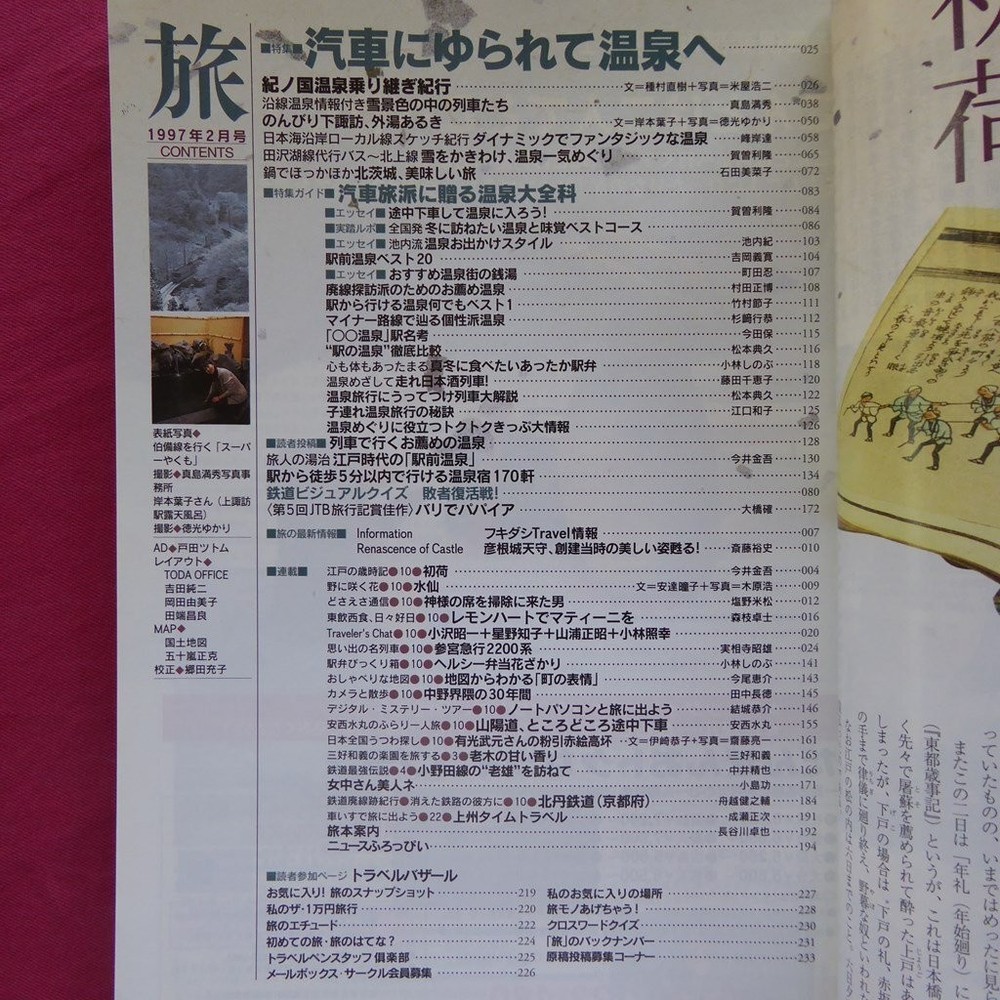 旅
1997年2月号
CONTENTS
表紙写真◆
伯備線を行く「スーパ
ーやくも」
撮影◆真島満秀写真事
務所
岸本葉子さん(上諏訪
駅露天風呂)
撮影◆徳光ゆかり
AD◆戸田ツトム
レイアウト◆
TODA OFFICE
吉田純二
岡田由美子
田端昌良
MAP◆
国土地図
五十嵐正克
校正◆郷田充子
■特集■汽車にゆられて温泉へ 025
紀ノ国温泉乗り継ぎ紀行 文=種村直樹+写真=米屋浩二 026
沿線温泉情報付き雪景色の中の列車たち 真島満秀 038
のんびり下諏訪、外湯あるき 文=岸本葉子+写真=徳光ゆかり 050
日本海沿岸ローカル線スケッチ紀行 ダイナミックでファンタジックな温泉 峰岸達 058
田沢湖線代行バス〜北上線 雪をかきわけ、温泉一気めぐり 賀曽利隆 065
鍋でほっかほか北茨城、美味しい旅 石田美菜子 072
■特集ガイド■汽車旅派に贈る温泉大全科 083
■エッセイ■途中下車して温泉に入ろう! 賀曽利隆 084
■実踏ルポ■全国発 冬に訪ねたい温泉と味覚ベストコース 086
■エッセイ■池内流温泉お出かけスタイル 池内紀 103
駅前温泉ベスト20 吉岡義寛 104
■エッセイ■おすすめ温泉街の銭湯 町田忍 107
廃線探訪派のためのお薦め温泉 村田正博 108
駅から行ける温泉何でもベスト1 竹村節子 111
マイナー路線で辿る個性派温泉 杉﨑行恭 112
「○○温泉」駅名考 今田保 115
“駅の温泉”徹底比較 松本典久 116
心も体もあったまる真冬に食べたいあったか駅弁 小林しのぶ 118
温泉めざして走れ日本酒列車! 藤田千恵子 120
温泉旅行にうってつけ列車大解説 松本典久 122
子連れ温泉旅行の秘訣 江口和子 125
温泉めぐりに役立つトクトクきっぷ大情報 126
■読者投稿■列車で行くお薦めの温泉 128
旅人の湯治 江戸時代の「駅前温泉」 今井金吾 130
駅から徒歩5分以内で行ける温泉宿170軒 134
鉄道ビジュアルクイズ 敗者復活戦! 080
〈第5回JTB旅行記賞佳作〉バリでパパイア 大橋確 172
■旅の最新情報■ Information フキダシTravel情報 007
Renascence of Castle 彦根城天守、創建当時の美しい姿甦る! 斎藤裕史 010
■連載■ 江戸の歳時記●10●初荷 今井金吾 004
野に咲く花●10●水仙 文=安達瞳子+写真=木原浩 009
どさえさ通信●10●神様の席を掃除に来た男 塩野米松 012
東飲西食、日々好日●10●レモンハートでマティーニを 森枝卓士 016
Traveler's Chat●10●小沢昭一+星野知子+山浦正昭+小林照幸 020
思い出の名列車●10●参宮急行2200系 実相寺昭雄 024
駅弁びっくり箱●10●ヘルシー弁当花ざかり 小林しのぶ 141
おしゃべりな地図●10●地図からわかる「町の表情」 今尾恵介 143
カメラと散歩●10●中野界隈の30年間 田中長徳 145
デジタル・ミステリー・ツアー●10●ノートパソコンと旅に出よう 結城恭介 146
安西水丸のふらり一人旅●10●山陽道、ところどころ途中下車 安西水丸 155
日本全国うつわ探し●10●有光武元さんの粉引赤絵高坏 文=伊崎恭子+写真=齋藤亮一 161
三好和義の楽園を旅する●3●老木の甘い香り 三好和義 165
鉄道最強伝説●4●小野田線の“老雄”を訪ねて 中井精也 166
女中さん美人ネ 小島功 171
鉄道廃線跡紀行●消えた鉄路の彼方に●10●北丹鉄道(京都府) 舟越健之輔 184
車いすで旅に出よう●22●上州タイムトラベル 成瀬正次 191
旅本案内 長谷川卓也 192
ニュースふろっぴい 194
■読者参加ページ トラベルバザール
お気に入り! 旅のスナップショット 219
私のザ・1万円旅行 220
旅のエチュード 222
初めての旅・旅のはてな? 224
トラベルペンスタッフ倶楽部 225
メールボックス・サークル会員募集 226
私のお気に入りの場所 227
旅モノあげちゃう! 228
クロスワードクイズ 230
「旅」のバックナンバー 231
原稿投稿募集コーナー 233
初荷
っていたものの、いまではめったに見ら
またこの二日は「年礼(年始廻り)に
『東都歳事記』というが、これは日本橋
く先々で屠蘇を薦められて酔った上戸はあ
しまったが、下戸の場合は〝下戸の礼、赤
の手まで律儀に廻り終え、野暮な奴といわれ